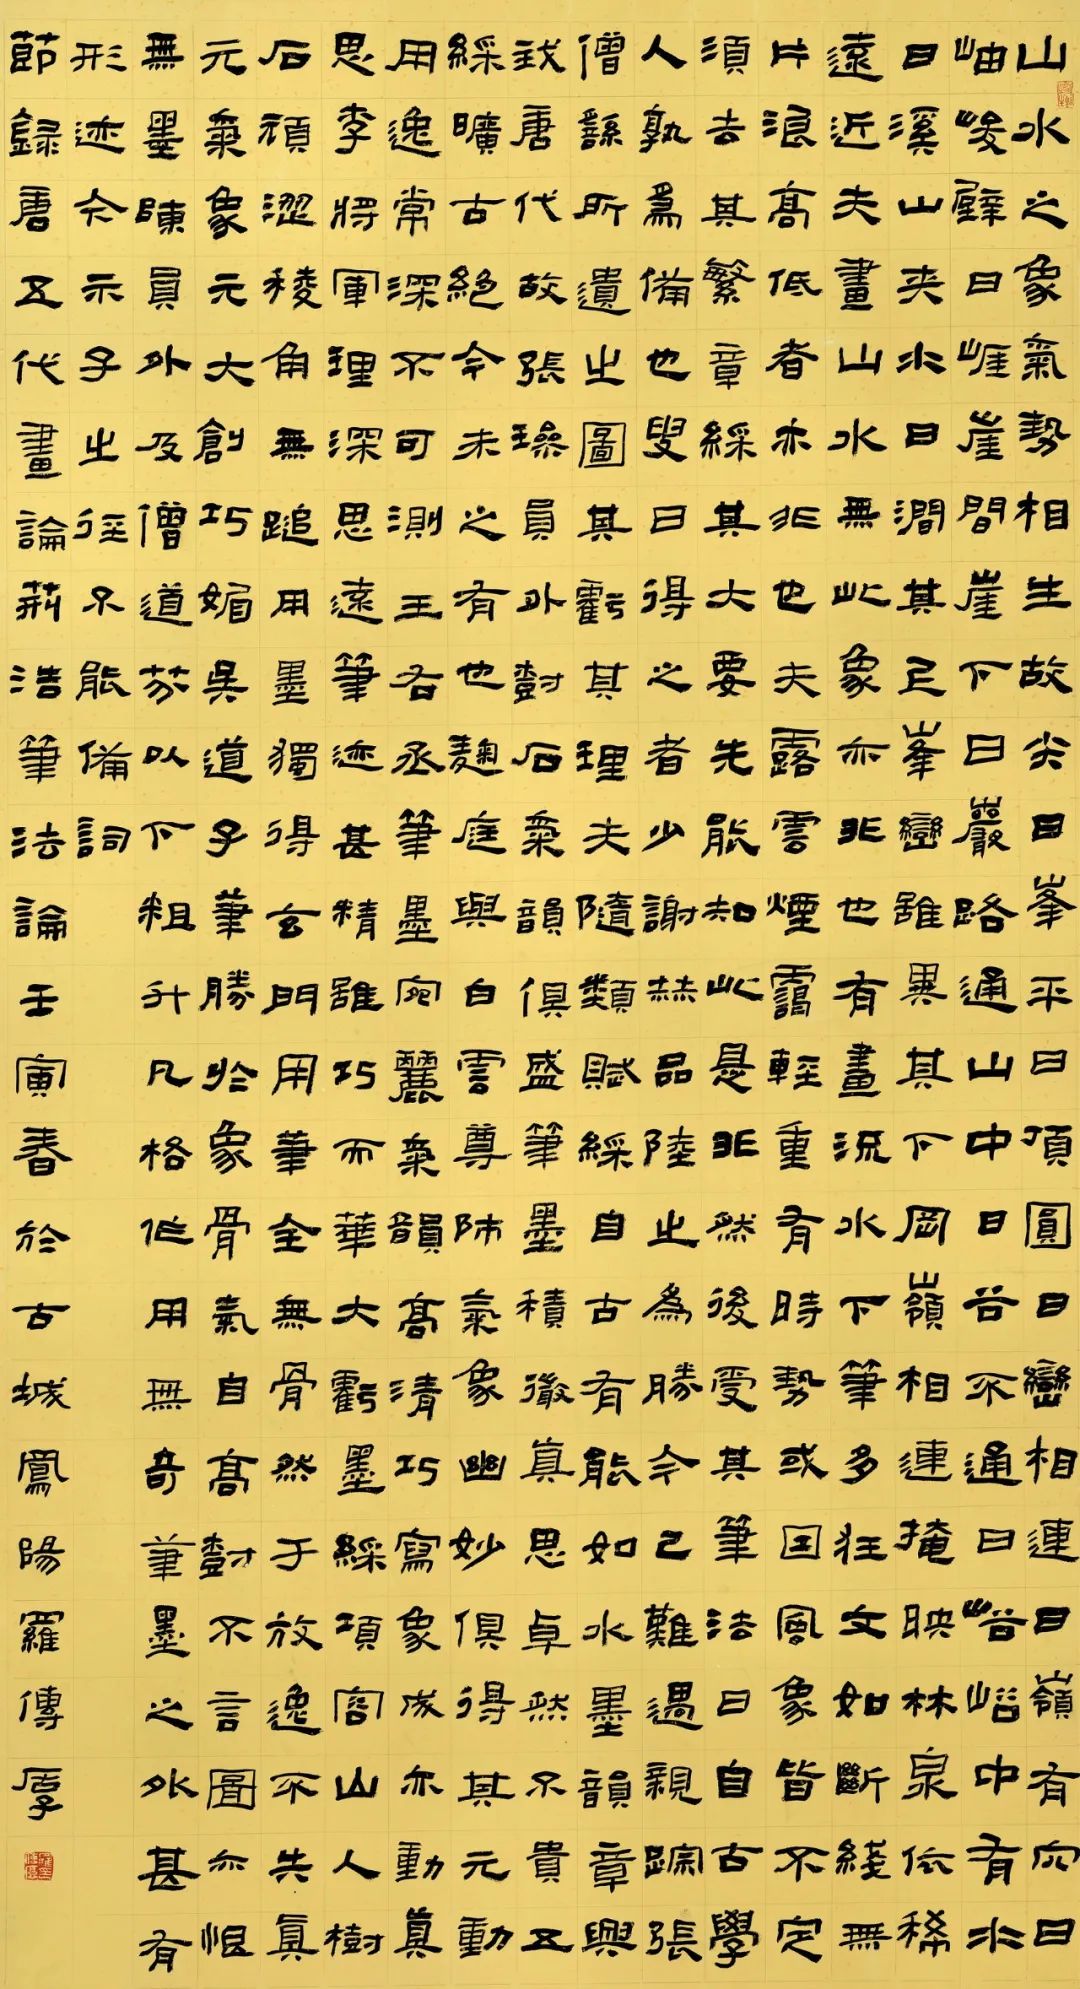 山水之象氣勢相生故尖曰峯平曰頂圓曰巒相連曰嶺有穴曰
岫峻壁曰崕崖間崖下曰巖路通山中曰谷不通曰峪峪中有水
曰溪山夾水曰澗其上峯巒雖異其下岡嶺相連掩映林泉依稀
遠近夫畫山水無此象亦非也有畫流水下筆多狂文如斷綫無
片浪高低者亦非也夫露雲煙靄輕重有時勢或因風象皆不定
須去其繁章綵其大要先能知此是非然後受其筆法曰自古學
人孰爲備也叟曰得之者少謝赫品陸之爲勝今已難遇親蹤張
僧繇所遺之圖其虧其理夫隨類賦綵自古有能如水墨韻章興
我唐代故張璪員外樹石氣韻俱盛筆墨積微真思卓然不貴五
綵曠古絕今未之有也麴庭與白雲尊師氣象幽妙俱得其元動
用逸常深不可測王右丞筆墨宛麗氣韻高清巧寫象成亦動真
思李將軍理深思遠筆迹甚精雖巧而華大虧墨綵項容山人樹
石頑澀稜角無用墨獨得玄門用筆全無骨然于放逸不失真
元氣象元大創巧媚吳道子筆勝於象骨氣自高樹不言圖亦恨
無墨陳員外及僧道芬以下粗升凡格作用無奇筆墨之外甚有
形迹今示子之徑不能備詞
節録唐五代畫論荊浩筆法論壬寅春於古城鳳陽羅傳厚